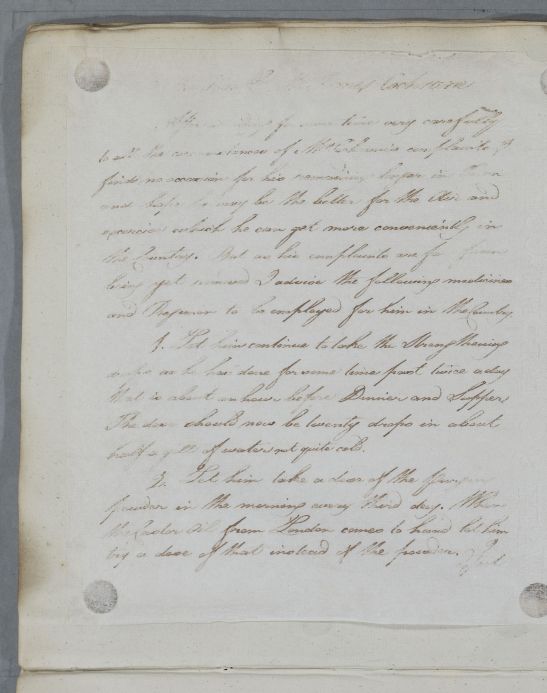 Cochrane
for some time very carefully
to all the circumstances of Mr Cochrane's complaints I
find no occasion for his remaining longer in Town
and hope he may be the better for the Air and
exercise which he can get more conveniently in
the Country. But as his complaints are far from
being yet removed I advise the following medicines
and Regimen to be employed for him in the Country.
1. Let him continue to take the Strengthening
as he has done for some time past twice a day
that is about an hour before Dinner and Supper
The dose should now be twenty drops in about
half a gill of water not quite cold.
2. Let him take a dose of the
powder in the morning every third day. When
the Castor Oil from London comes to hand let him
try a dose of that instead of the powder.